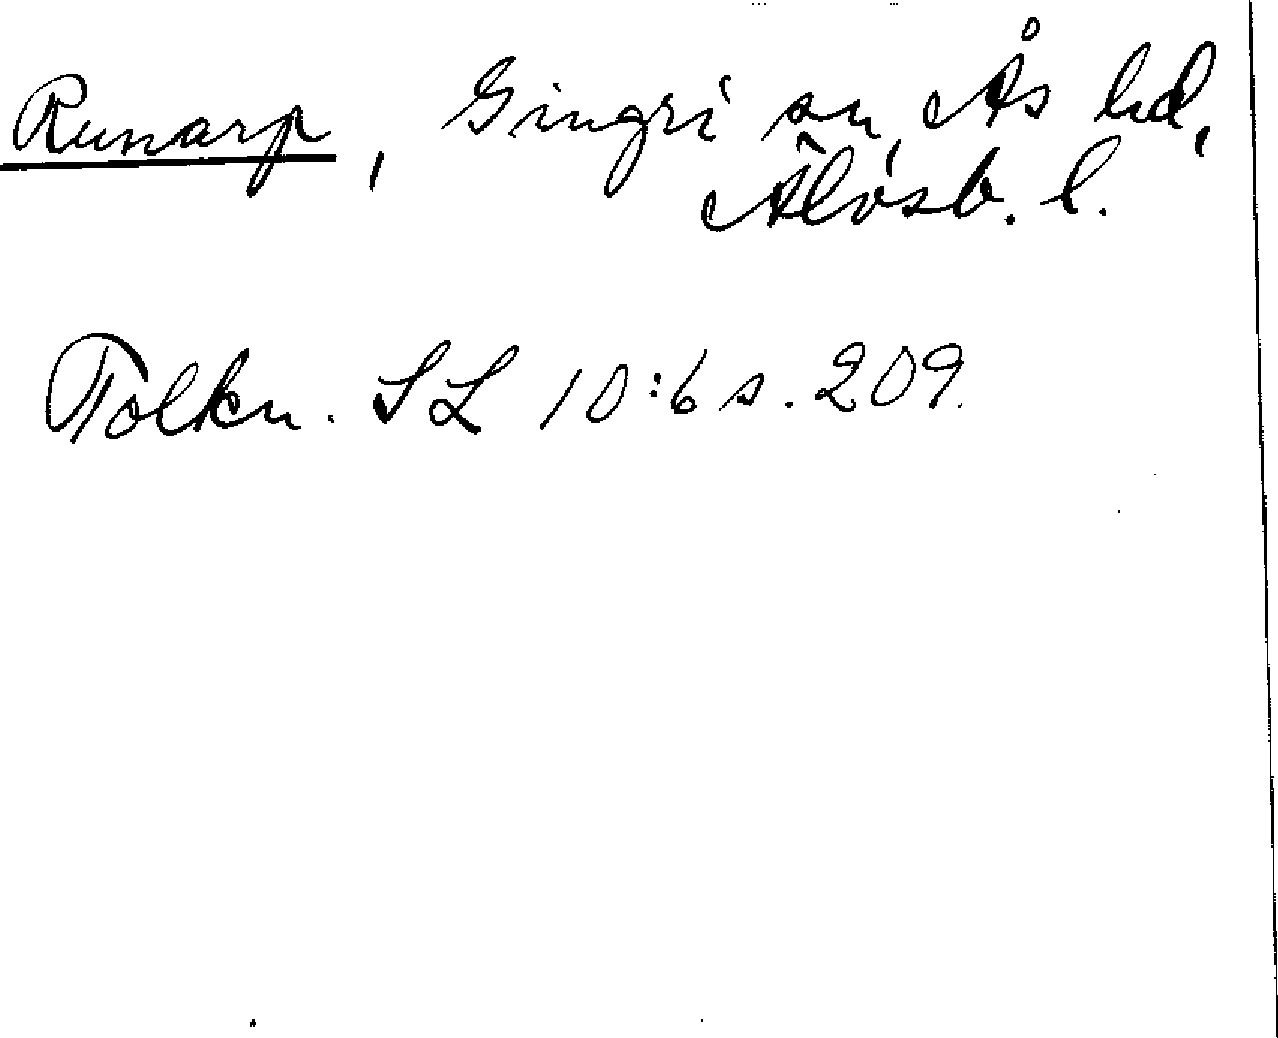 Runarp, Gingri sn, Ås hd,
Älvsb. l.
Tolkn. SL 10:6 s. 209.